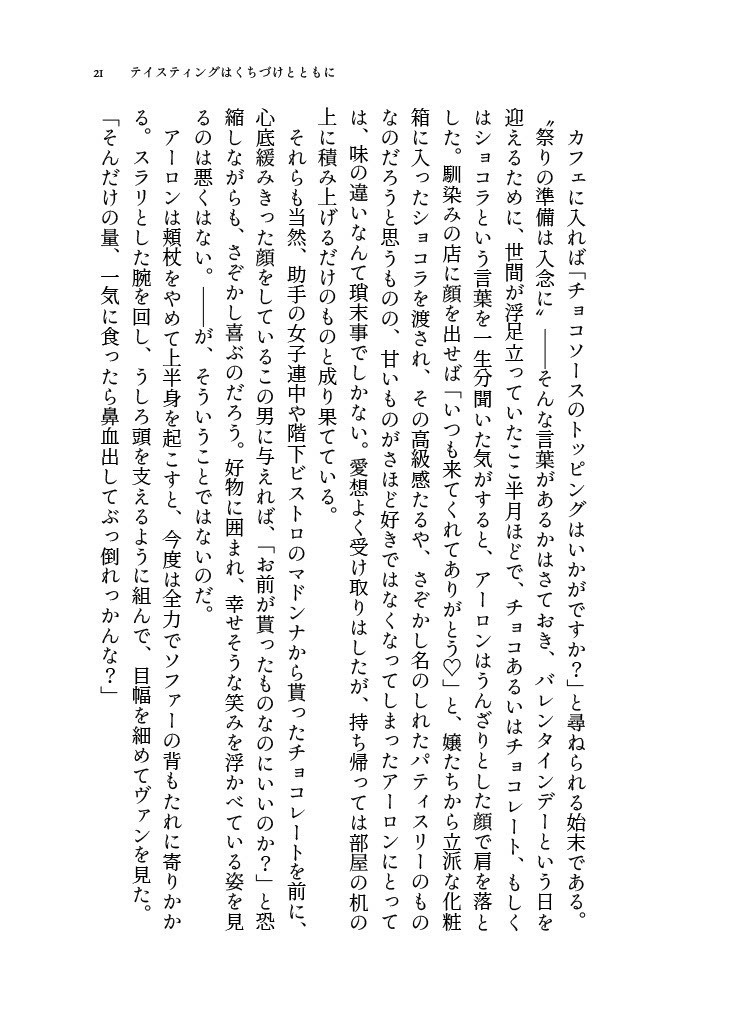 21　テイスティングはくちづけとともに
カフェに入れば「チョコソースのトッピングはいかがですか？」と尋ねられる始末である。
〝祭りの準備は入念に〟――そんな言葉があるかはさておき、バレンタインデーという日を
迎えるために、世間が浮足立っていたここ半月ほどで、チョコあるいはチョコレート、もしく
はショコラという言葉を一生分聞いた気がすると、アーロンはうんざりとした顔で肩を落と
した。馴染みの店に顔を出せば「いつも来てくれてありがとう♡」と、嬢たちから立派な化粧
箱に入ったショコラを渡され、その高級感たるや、さぞかし名のしれたパティスリーのもの
なのだろうと思うものの、甘いものがさほど好きではなくなってしまったアーロンにとって
は、味の違いなんて瑣末事でしかない。愛想よく受け取りはしたが、持ち帰っては部屋の机の
上に積み上げるだけのものと成り果てている。
それらも当然、助手の女子連中や階下ビストロのマドンナから貰ったチョコレートを前に、
心底緩みきった顔をしているこの男に与えれば、「お前が貰ったものなのにいいのか？」と恐
縮しながらも、さぞかし喜ぶのだろう。好物に囲まれ、幸せそうな笑みを浮かべている姿を見
るのは悪くはない。――が、そういうことではないのだ。
アーロンは頬杖をやめて上半身を起こすと、今度は全力でソファーの背もたれに寄りかか
る。スラリとした腕を回し、うしろ頭を支えるように組んで、目幅を細めてヴァンを見た。
「そんだけの量、一気に食ったら鼻血出してぶっ倒れっかんな？」